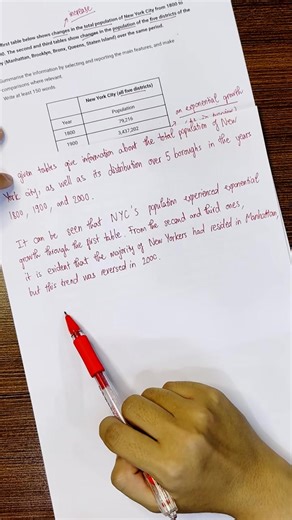 increase
first table below shows changes in the total population of New York City from 1800 to
The second and third tables show changes in the population of the five districts of the
(Manhattan, Brooklyn, Bronx, Queens, Staten Island) over the same period.
Summarise the information by selecting and reporting the main features, and make
comparisons where relevant
Write at least 150 words
New York City (all five districts)
Year Population
1800 79,216
1900 3,437,202
an exponential growth
given tables give information about the total population of New
York City, as well as its distribution over 5 boroughs in the years
1800, 1900, and 2000.
It can be seen that NYC's population experienced exponential
growth through the first table. From the second and third ones,
it is evident that the majority of New Yorkers had resided in Manhattan,
but this trend was reversed in 2000.